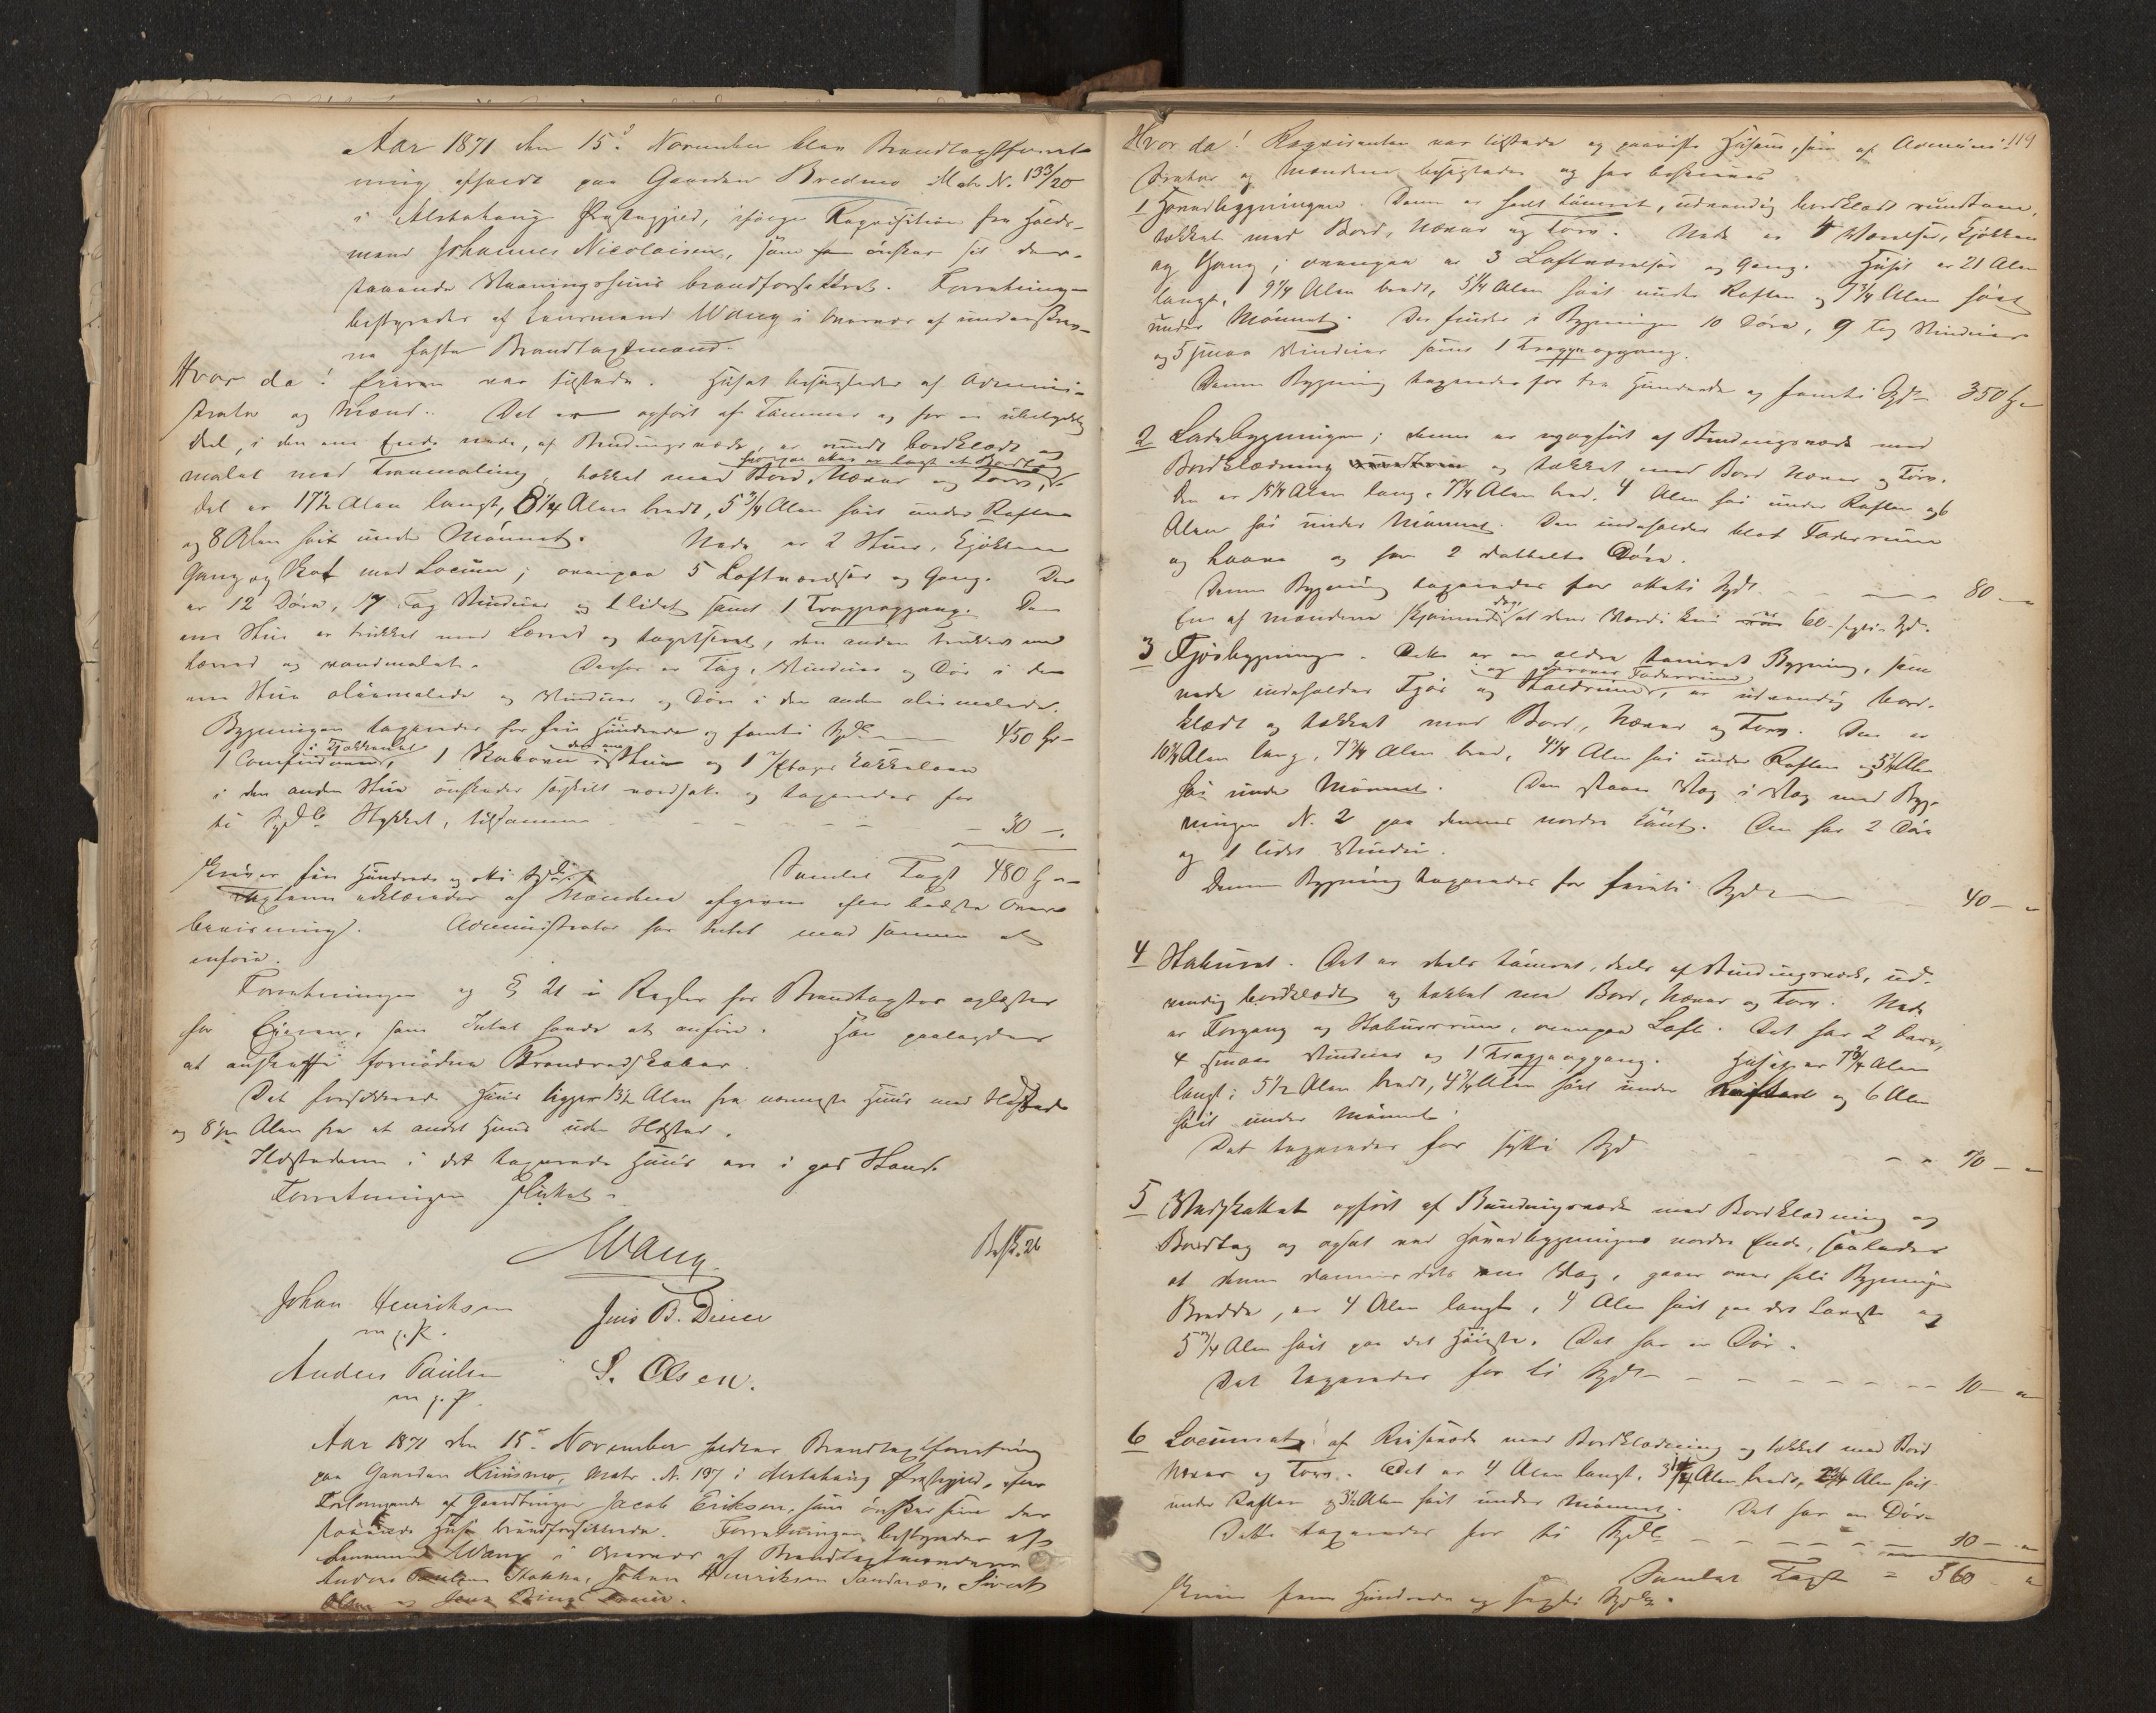 Aar 1871 den 15de November blev Brandtaxtforret-
ning afholdt paa Gaarden Bredmo Matr N. 133/20
i Alstahaug Præstegjeld, ifølge Requisition fra Huus-
mand Johannes Nicolaisen, som ønsker sit der-
staaende Vaaningshuus brandforsikkret. Forretningen
bestyredes af Lensmand Wang i Overvær af underskrev-
ne faste Brandtaxtmænd.
Hvor da! Eieren var tilstede. Huset besigtedes af Admini-
strator og Mænd. Det er opført af Tømmer og for en ubetydelig
Deel, i den ene Ende nede, af Bindingsværk, er rundt bordklædt og
malet med Tranmaling, tækket med Bord, Næver og Torv,
det er 17½ Alen langt, 8¼ Alen bredt, 5¾ Alen høit under Raften
og 8 Alen høit under Mønnet. Nede er 2 Stuer, Kjøkken
Gang og Skot med Locum; ovenpaa 5 Loftværelser og Gang. Der
er 12 Døre, 17 Fag Vinduer og 1 lidet samt 1 Trappeopgang. Den
ene Stue er trukket med Lærred og tapetseret, den anden trukket med
Lærred og vandmalet. Derhos er Tag, Vinduer og Dør i den
ene Stue oliemalede og Vinduer og Døre i den anden oliemalede.
Bygningen taxeredes for fire Hundrede og femti Spd 450 Spd
1 Comfur i Kjøkkenet, 1 Kakovn i den ene Stue og 1 Etages Kakkelovn
i den anden Stue ønskedes særskilt ansat og taxeredes for
ti Spd Stykket, tilsammen 30 –
Skriver fire Hundrede og otti Spd. Samlet Taxt 480 Spd
Taxterne erklæredes af Mændene afgivne efter bedste Over-
beviisning. Administrator har Intet mod samme at
anføre.
Forretningen og § 21 i Regler for Brandtaxter oplæstes
for Eieren, som Intet havde at anføre. Han paalagdes
at anskaffe fornødne Brandredskaber.
Det forsikkrede Huus ligger 13½ Alen fra nærmeste Huus med Ildsted
og 8½ Alen fra et andet Huus uden Ildsted.
Ildstederne i det taxerede Huus ere i god Stand.
Forretningen sluttet.
Wang.
Besk. 26
Johan Henriksen Jens B. Diner
m. p. P.
Anders Paulsen S. Olsen.
m. p. P.
Aar 1871 den 15de November holdtes Brandtaxtforretning
paa Gaarden Kviismo, Matr. N. 137 i Alstahaug Præstegjeld, efter
Forlangende af Gaardbruger Jacob Eriksen, som ønsker sine der
staaende Huse brandforsikkrede. Forretningen bestyredes af
Lensmand Wang i Overvær af Brandtaxtmændene
Anders Paulsen Stokke, Johan Henriksen Sandnes, Sivert
Olsen og Jens Bing Diner.
119
Hvor da! Requirenten var tilstede og paaviste Husene, som af Admini-
strator og Mændene besigtedes og her beskrives
1 Hovedbygningen. Denne er heelt tømret, udvendig bordklædt rundtom,
tækket med Bord, Næver og Torv. Nede er 4 Værelser, Kjøkken
og Gang; ovenpaa er 3 Loftværelser og Gang. Huset er 21 Alen
langt, 9¼ Alen bredt, 5¼ Alen høit under Raften og 7¾ Alen høit
under Mønnet. Der findes i Bygningen 10 Døre, 9 Fag Vinduer
og 5 smaa Vinduer samt 1 Trappeopgang.
Denne Bygning taxeredes for tre Hundrede og femti Spd 350 Spd
2 Ladebygningen; denne er nyopført af Bindingsværk med
Bordklædning og tækket med Bord Næver og Torv.
Den er 15¼ Alen lang, 7¾ Alen bred, 4 Alen høi under Raften og 6
Alen høi under Mønnet. Den indeholder blot Foderrum
og Laave og har 2 dobbelte Døre.
Denne Bygning taxeredes for otteti Spd. 80 –
En af Mændene skjønnede dog, at dens Værdi kun er 60 sexti Spd.
3 Fjøsbygningen. Dette er en ældre tømret Bygning, som
nede indeholder Fjøs og Koldrum, og derover Foderrum, er udvendig bord-
klædt og tækket med Bord, Næver og Torv. Den er
10¾ Alen lang, 7¾ Alen bred, 4¼ Alen høi under Raften og 5¾ Alen
høi under Mønnet. Den staaer Væg i Væg med Byg-
ningen N. 2 paa dennes nordre Kant. Den har 2 Døre
og 1 lidet Vindue.
Denne Bygning taxeredes for førti Spd 40 –
4 Staburet. Det er deels tømret, deels af Bindingsværk, ud-
vendig bordklædt og tækket med Bord, Næver og Torv. Nede
er Forgang og Staburrum, ovenpaa Loft. Det har 2 Døre,
4 smaa Vinduer og 1 Trappeopgang. Huset er 7¾ Alen
langt, 5½ Alen bredt, 4¾ Alen høit under Raftet og 6 Alen
høit under Mønnet.
Det taxeredes for sytti Spd 70 –
5 Vedskottet opført af Bindingsværk med Bordklædning og
Bordtag og opsat ved Hovedbygningens nordre Ende, saaledes
at denne danner dets ene Væg, gaaer over hele Bygningens
Bredde, er 4 Alen langt, 4 Alen høit paa det Laveste og
5¾ Alen høit paa det Høieste. Det har en Dør.
Det taxeredes for ti Spd 10 –
6 Locumet af Reisværk med Bordklædning og tækket med Bord
Næver og Torv. Det er 4 Alen langt, 3¼ Alen bredt, 2¾ Alen høit
under Raften og 3½ Alen høit under Mønnet. Det har en Dør.
Dette taxeredes for ti Spd 10 –
Samlet Taxt = 560
Skriver fem Hundrede og sexti Spd.